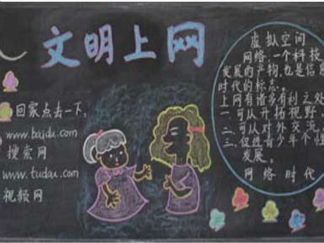 文明上网
回家点去一下,
www.baidu.com
搜索网
www.tudou.com
视频网
虚拟空间
网络,一个科技
发展的产物,也是信息
时代的标志。
上网有诸多有利之处
一可从开拓视野
二、可从对外交流
三、促进青少年个性
发展。
网络时代